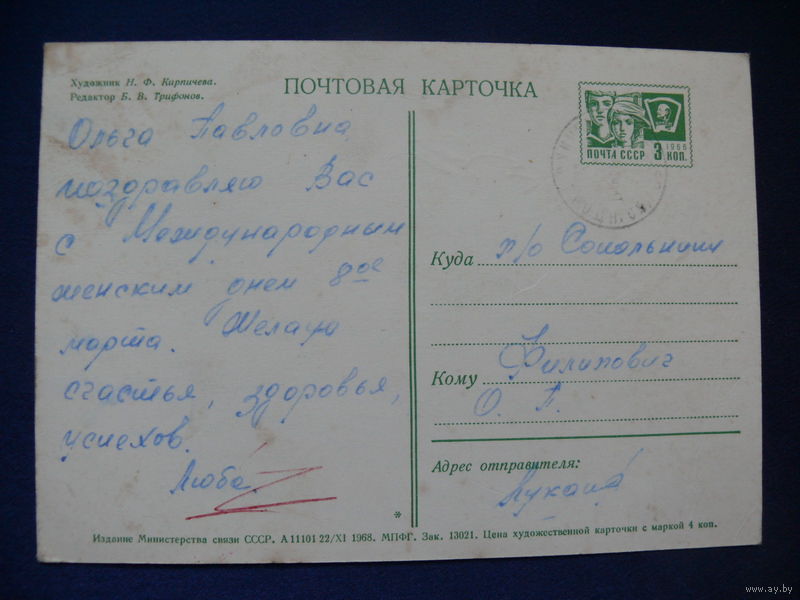 Художник Н. Ф. Кирпичева.
Редактор Б. В. Трифонов.
ПОЧТОВАЯ КАРТОЧКА
1966
ПОЧТА СССР 3 КОП.
Ольга Павловна
поздравляю Вас
с Международным
женским днем 8ое
марта. Желаю
счастья, здоровья,
успехов.
Люба
Куда п/о Сокольники
Кому Филипович
О. П.
Адрес отправителя:
*
Издание Министерства связи СССР. А 11101 22/XI 1968. МПФГ. Зак. 13021. Цена художественной карточки с маркой 4 коп.
www.ay.by